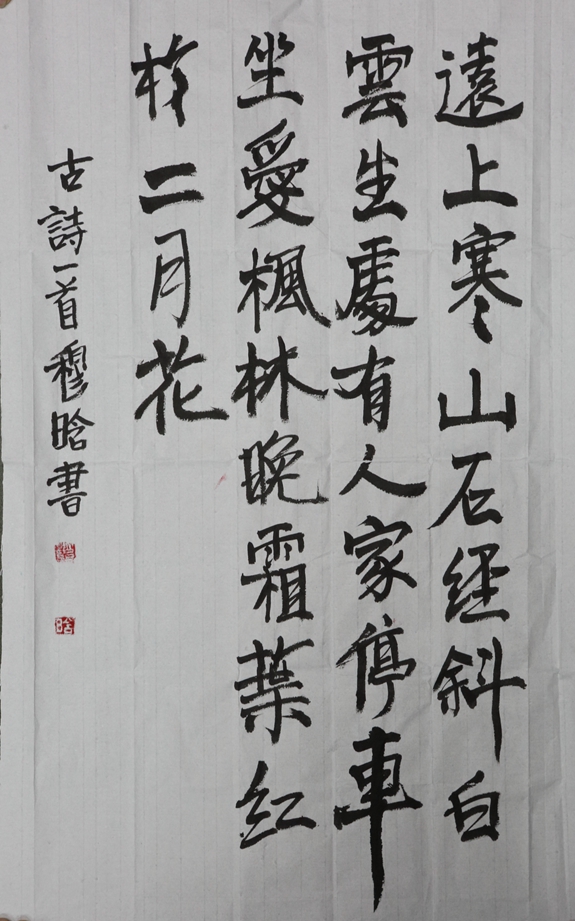 遠上寒山石經斜白
雲生處有人家停車
坐愛楓林晚霜葉紅
扵二月花
古詩一首穆晗書
晗